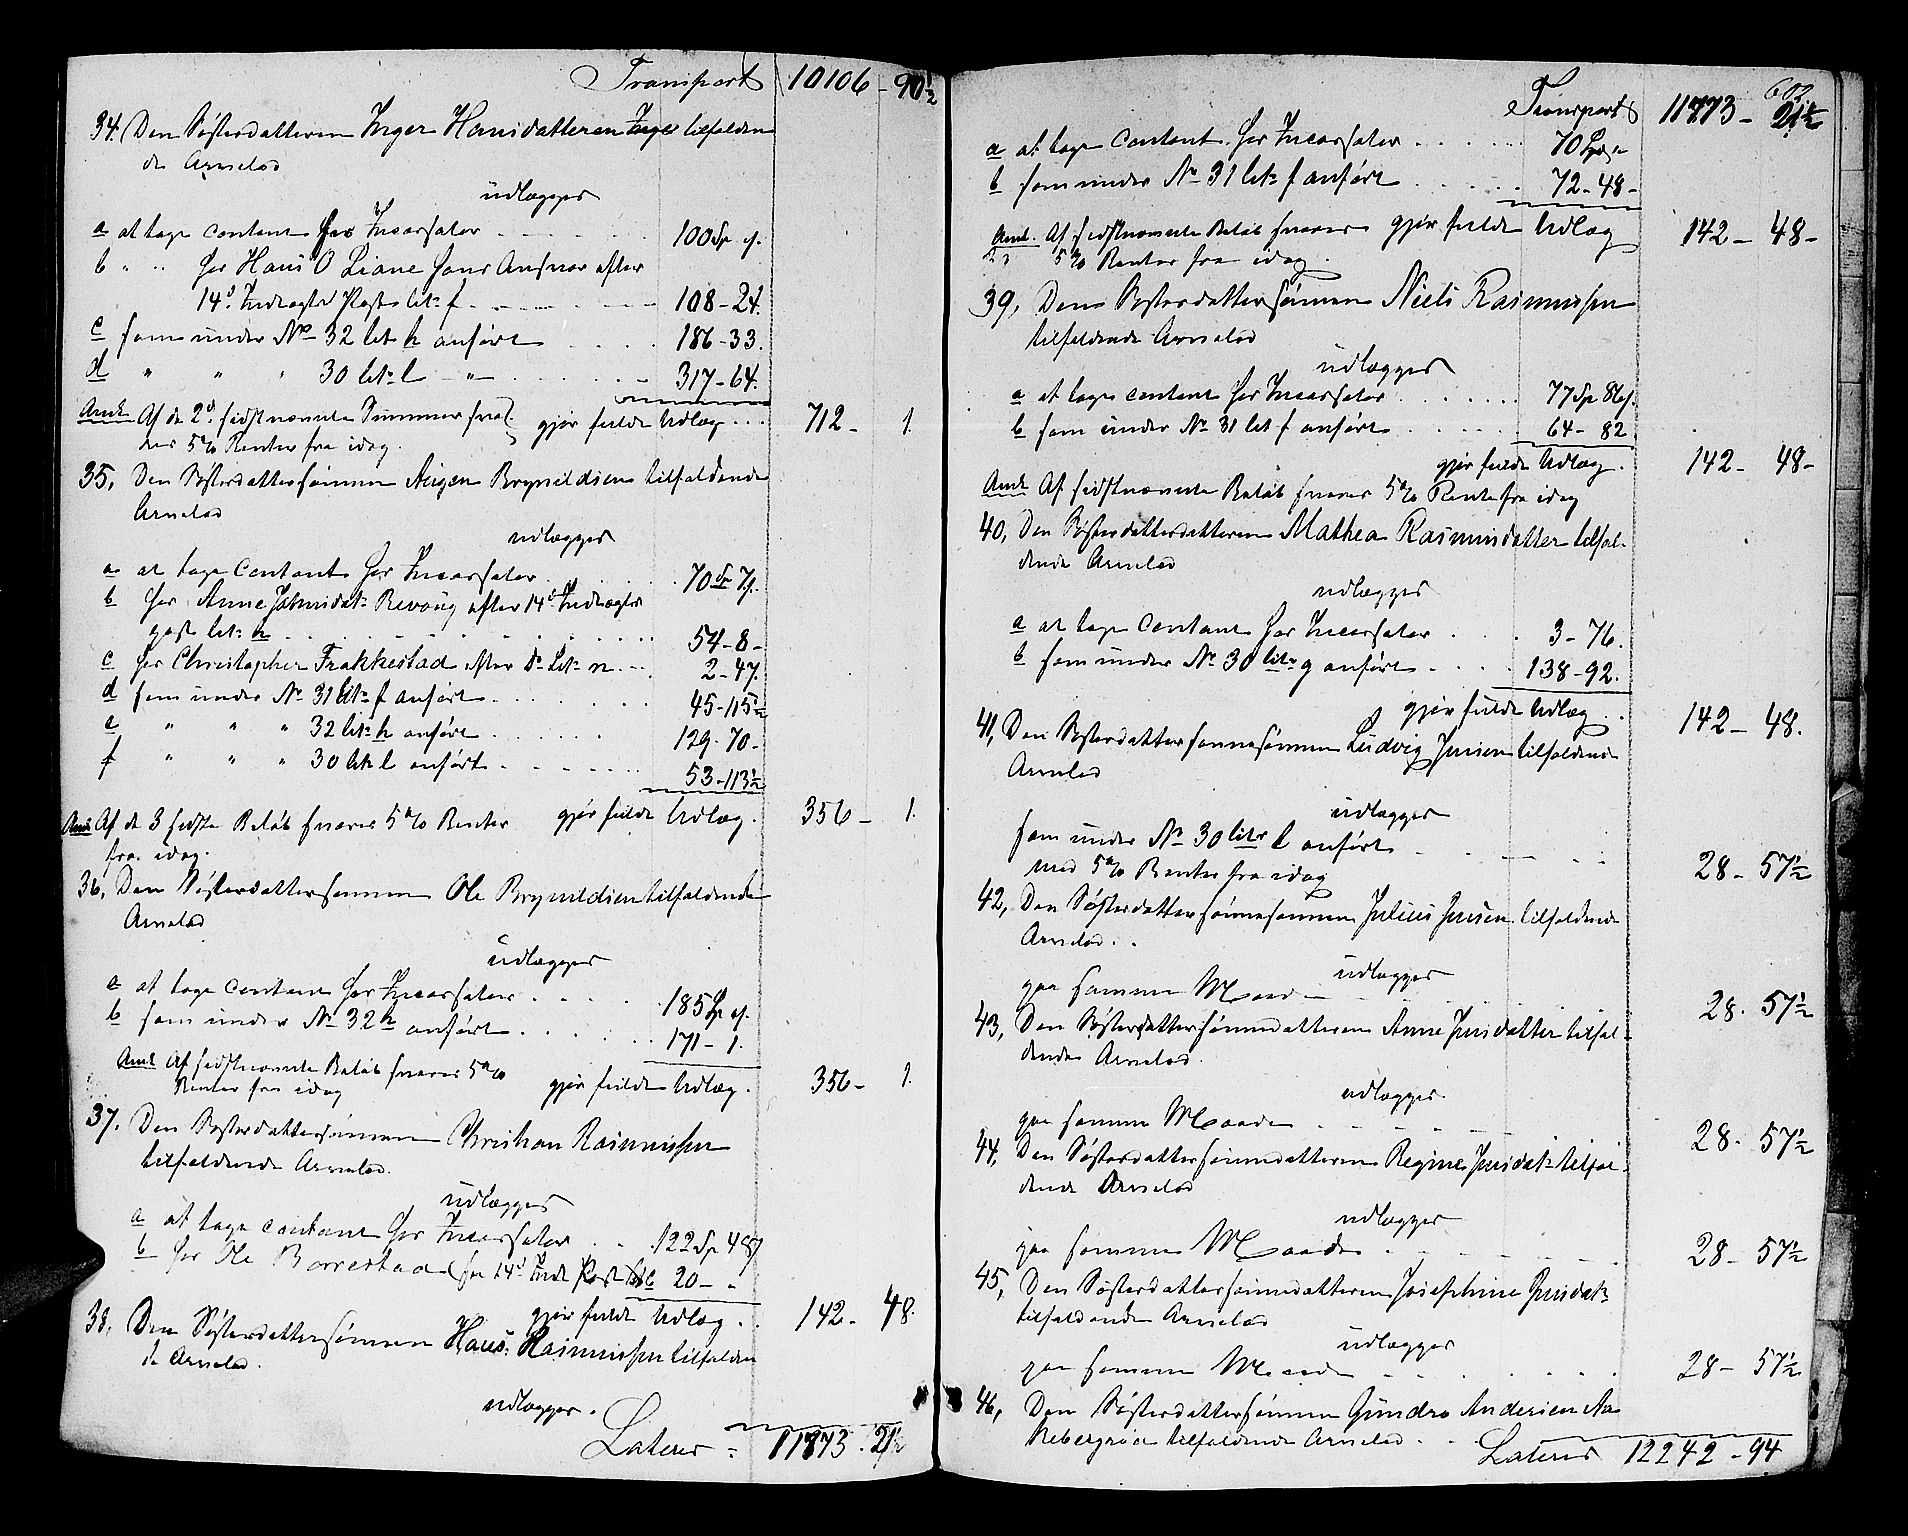 Transport 10106 - 90½
34. Den Søsterdatteren Inger Hansdatteren tilfalden
de Arvelod
udlægges
a at tage contant hos Incassator 100 Sp „ s.
b „ „ hos Hans O Liane hans Ansvar efter
14d. Indtægts Post Litr f. 108 - 24.
c som under No 32 Lit h anført 186 - 33.
d „ „ „ 30 Litr l — „ — 317 - 64.
Anm. Af de 2de sidstnævnte Summer sva-
res 5 % Renter fra idag. gjør fulde Udlæg 712 - 1.
35, Den Søsterdattersønnen Jørgen Brynildsen tilfaldende
Arvelod
udlægges
a at tage Contant hos Incassator 70 Sp 7 s.
b hos Anne Johnsdatr Revoug efter 14d Indtægts
post Litr h 54 - 8 -
c hos Christopher Frakkestad efter do Litr n 2 - 47.
d som under No 31 Litr f anført 45 - 115½
e „ „ „ 32 Litr h anført 129 - 70 -
f „ „ „ 30 Litr l anført 53 - 113½
Anm. Af de 3 sidste Beløb svares 5 % Renter gjør fulde Udlæg. 356 - 1.
fra idag.
36, Den Søsterdattersønnen Ole Brynildsen tilfaldende
Arvelod
udlægges
a at tage contant hos Incassator 185 Sp „ s.
b som under No 32 h anført 171 - 1.
Anm. Af sidstnævnte Beløb svares 5 %
Renter fra idag gjør fulde Udlæg. 356 - 1.
37. Den Søsterdattersønnen Christian Rasmussen
tilfaldende Arvelod.
udlægges
a at tage contant hos Incassator 122 Sp 48 s
b hos Ole Borrestad (se 14d Indt Post Lit c 20 - „
gjør fulde Udlæg 142 - 48.
38. Den Søsterdattersønnen Hans Rasmussen tilfalden
de Arvelod.
udlægges.
Lateres 11773 - 21½
602
Transport 11773 - 21½
a at tage Contant hos Incassator 70 Sp „
b som under No 31 Litr f anført 72 - 48 -
Anm. Af sidstnævnte Beløb svares gjør fulde Udlæg 142 - 48 -
5 % Renter fra idag.
39, Den Søsterdattersønnen Niels Rasmussen
tilfaldende Arvelod
udlægges
a at tage contant hos Incassator 77 Sp 86 s.
b som under No 31 Lit f anført 64 - 82
gjør fulde Udlæg. 142 - 48 -
Anm. Af sidstnævnte Beløb svares 5 % Rente fra idag
40, Den Søsterdatterdatteren Mathea Rasmusdatter tilfal-
dende Arvelod
udlægges
a at tage Contant hos Incassator 3 - 76.
b som under No 30 Litr g anført 138 - 92.
gjør fulde Udlæg 142 - 48.
41, Den Søsterdattersønnesønnen Ludvig Jensen tilfaldende
Arvelod
udlægges
som under No 30 Litr l anført
med 5 % Renter fra idag 28 - 57½
42, Den Søsterdattersønnesønnen Julius Jensen tilfaldende
Arvelod
udlægges
paa samme Maade 28 - 57½
43, Den Søsterdattersønnedatteren Anne Jensdatter tilfal-
dende Arvelod.
udlægges
paa samme Maade 28 - 57½
44, Den Søsterdattersønnedatteren Regine Jensdatr tilfal-
dende Arvelod
udlægges
paa samme Maade 28 - 57½
45, Den Søsterdattersønnedatteren Josephine Jensdatr
tilfaldende Arvelod
udlægges
paa samme Maade 28 - 57½
46, Den Søsterdattersønnen Gundro Andersen
tilfaldende Arvelod
Lateres 12242 - 94